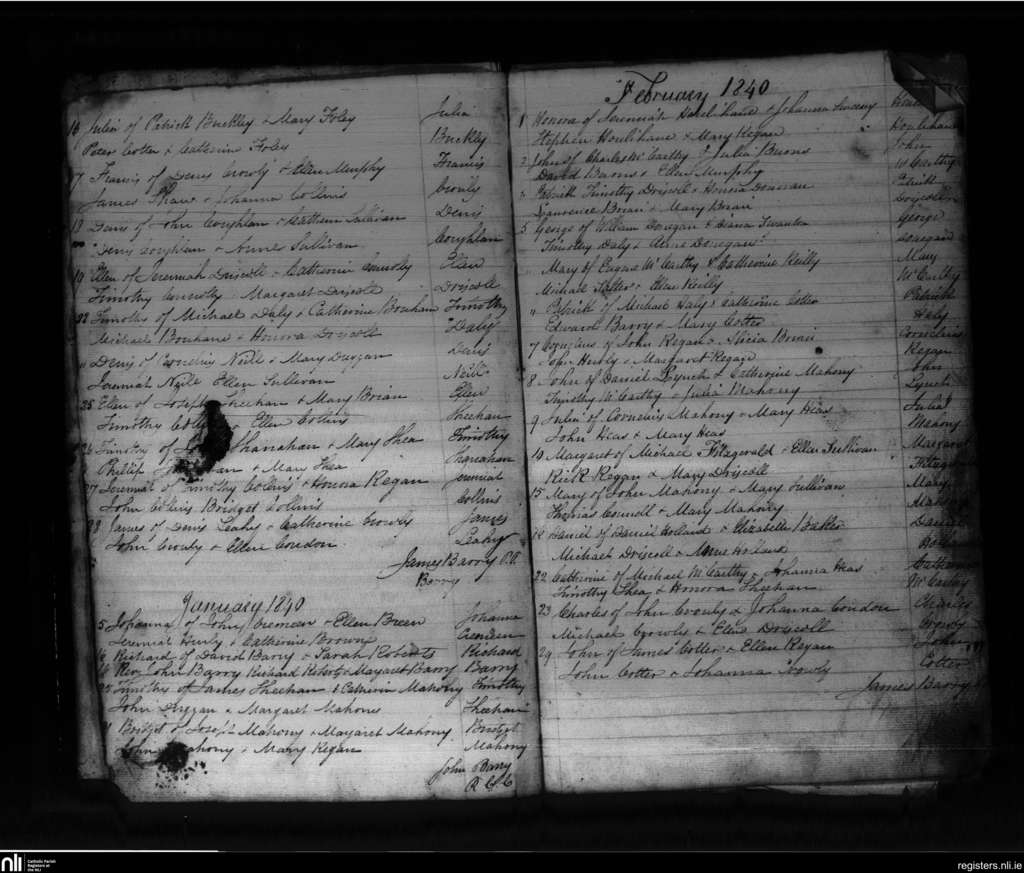 16 Julia of Patrick Buckley & Mary Foley Julia
Peter Cotter & Catherine Foley Buckley
17 Francis of Denis Crowly & Ellen Murphy Francis
James Shaw & Johanna Collins Crowly
18 Denis of John Coughlan & Sullivan Denis
Denis Coughlan & Anne Sullivan Coughlan
19 Ellen of Jeremiah Driscoll & Catherine Connolly Ellen
Timothy Connolly Margaret Driscoll Driscoll
22 Timothy of Michael Daly & Catherine Timothy
Michael & Honora Driscoll Daly
" Denis of Cornelius Neill & Mary Duggan Denis
Jeremiah Neile Ellen Sullivan Neill
25 Ellen of Joseph Sheehan & Mary Brian Ellen
Timothy & Ellen Collins Sheehan
26 Timothy of Shanahan & Mary Shea Timothy
Phillip & Mary Shea
27 Jeremiah of Timothy Collins & Honora Regan Jeremiah
John Collins Bridget Collins Collins
28 James of Denis Leahy & Catherine Crowly James
John Crowly & Ellen Condon Leahy
James Barry P.P.
Barry
January 1840
5 Johanna of John & Ellen Breen Johanna
Jeremiah Hurly & Catherine Browne
Richard of David Barry & Sarah Roberts Richard
Rev. John Barry Richard Roberts & Margaret Barry Barry
Timothy of James Sheehan & Catherine Mahony Timothy
John Duggan & Margaret Mahony Sheehan
Bridget of Joseph Mahony & Margaret Mahony Bridget
John Mahony & Mary Regan Mahony
John Barry
R C C
February 1840
1 Honora of Jeremiah & Johanna
Stephen Houlihane & Mary Regan Houlihane
2 John of Charles McCarthy & Julia Burns John
David Barons & Ellen Murphy McCarthy
" Patrick Timothy Driscoll & Honora Patrick
Lawrence Brian & Mary Brian Driscoll
5 George of William Donegan & Swanton George
Timothy Daly & Anne Donegan Donegan
" Mary of Eugene McCarthy & Catherine Reilly Mary
Michael & Ellen Reilly McCarthy
" Patrick of Michael Haly & Catherine Cotter Patrick
Edward Barry & Mary Cotter Haly
7 Cornelius of John Regan & Alicia Brian Cornelius
John Hurly & Margaret Regan Regan
8 John of Daniel Lynch & Catherine Mahony John
Timothy McCarthy & Julia Mahony Lynch
9 Julia of Cornelius Mahony & Mary Heas Julia
John Heas & Mary Heas Mahony
10 Margaret of Michael Fitzgerald & Ellen Sullivan Margaret
Rick Regan & Mary Driscoll
15 Mary of John Mahony & Mary Sullivan Mary
Thomas Connell & Mary Mahony
Daniel of Daniel Holland & Elizabeth Daniel
Michael Driscoll & Anne Holland
22 Catherine of Michael McCarthy & Johanna Heas
Timothy Shea & Honora Sheehan McCarthy
23 Charles of John Crowly & Johanna Condon Charles
Michael Crowly & Ellen Driscoll Crowly
29 John of James Cotter & Ellen Regan John
John Cotter & Johanna Crowly Cotter
James Barry
nli
Catholic Parish
Registers at
the NLI
registers.nli.ie